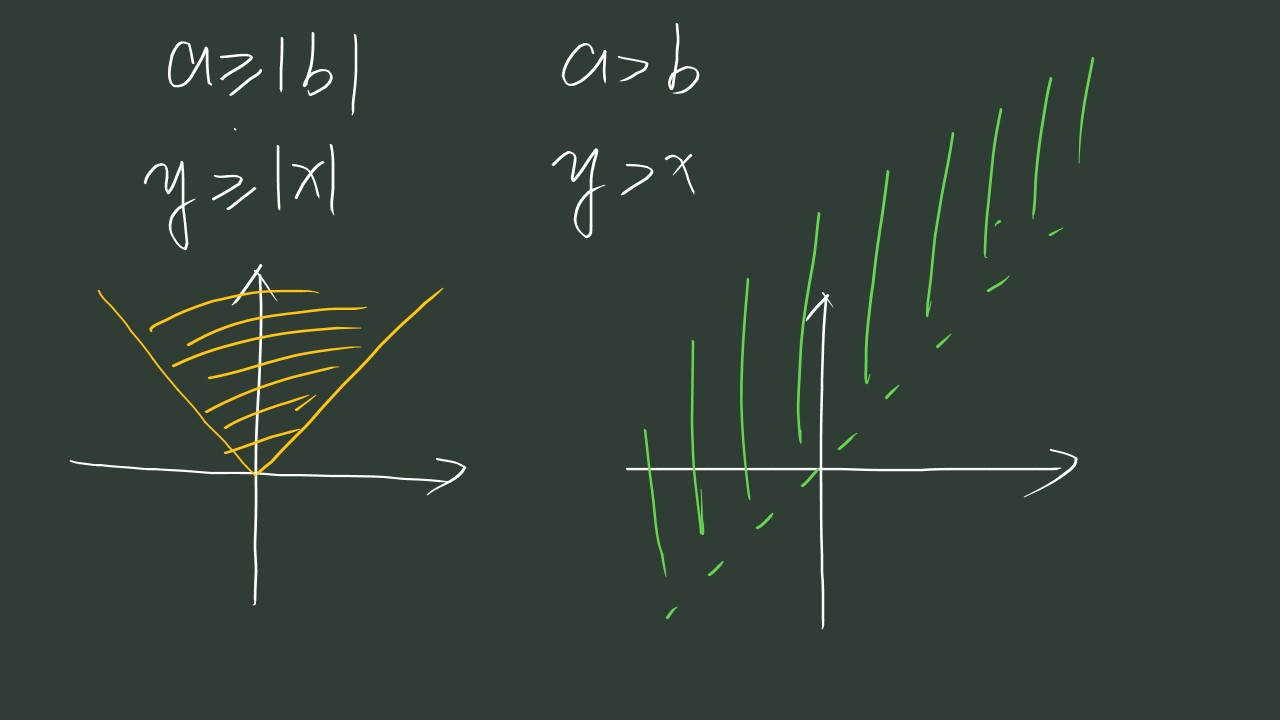 a≥|b|
y≥|x|
a>b
y>x